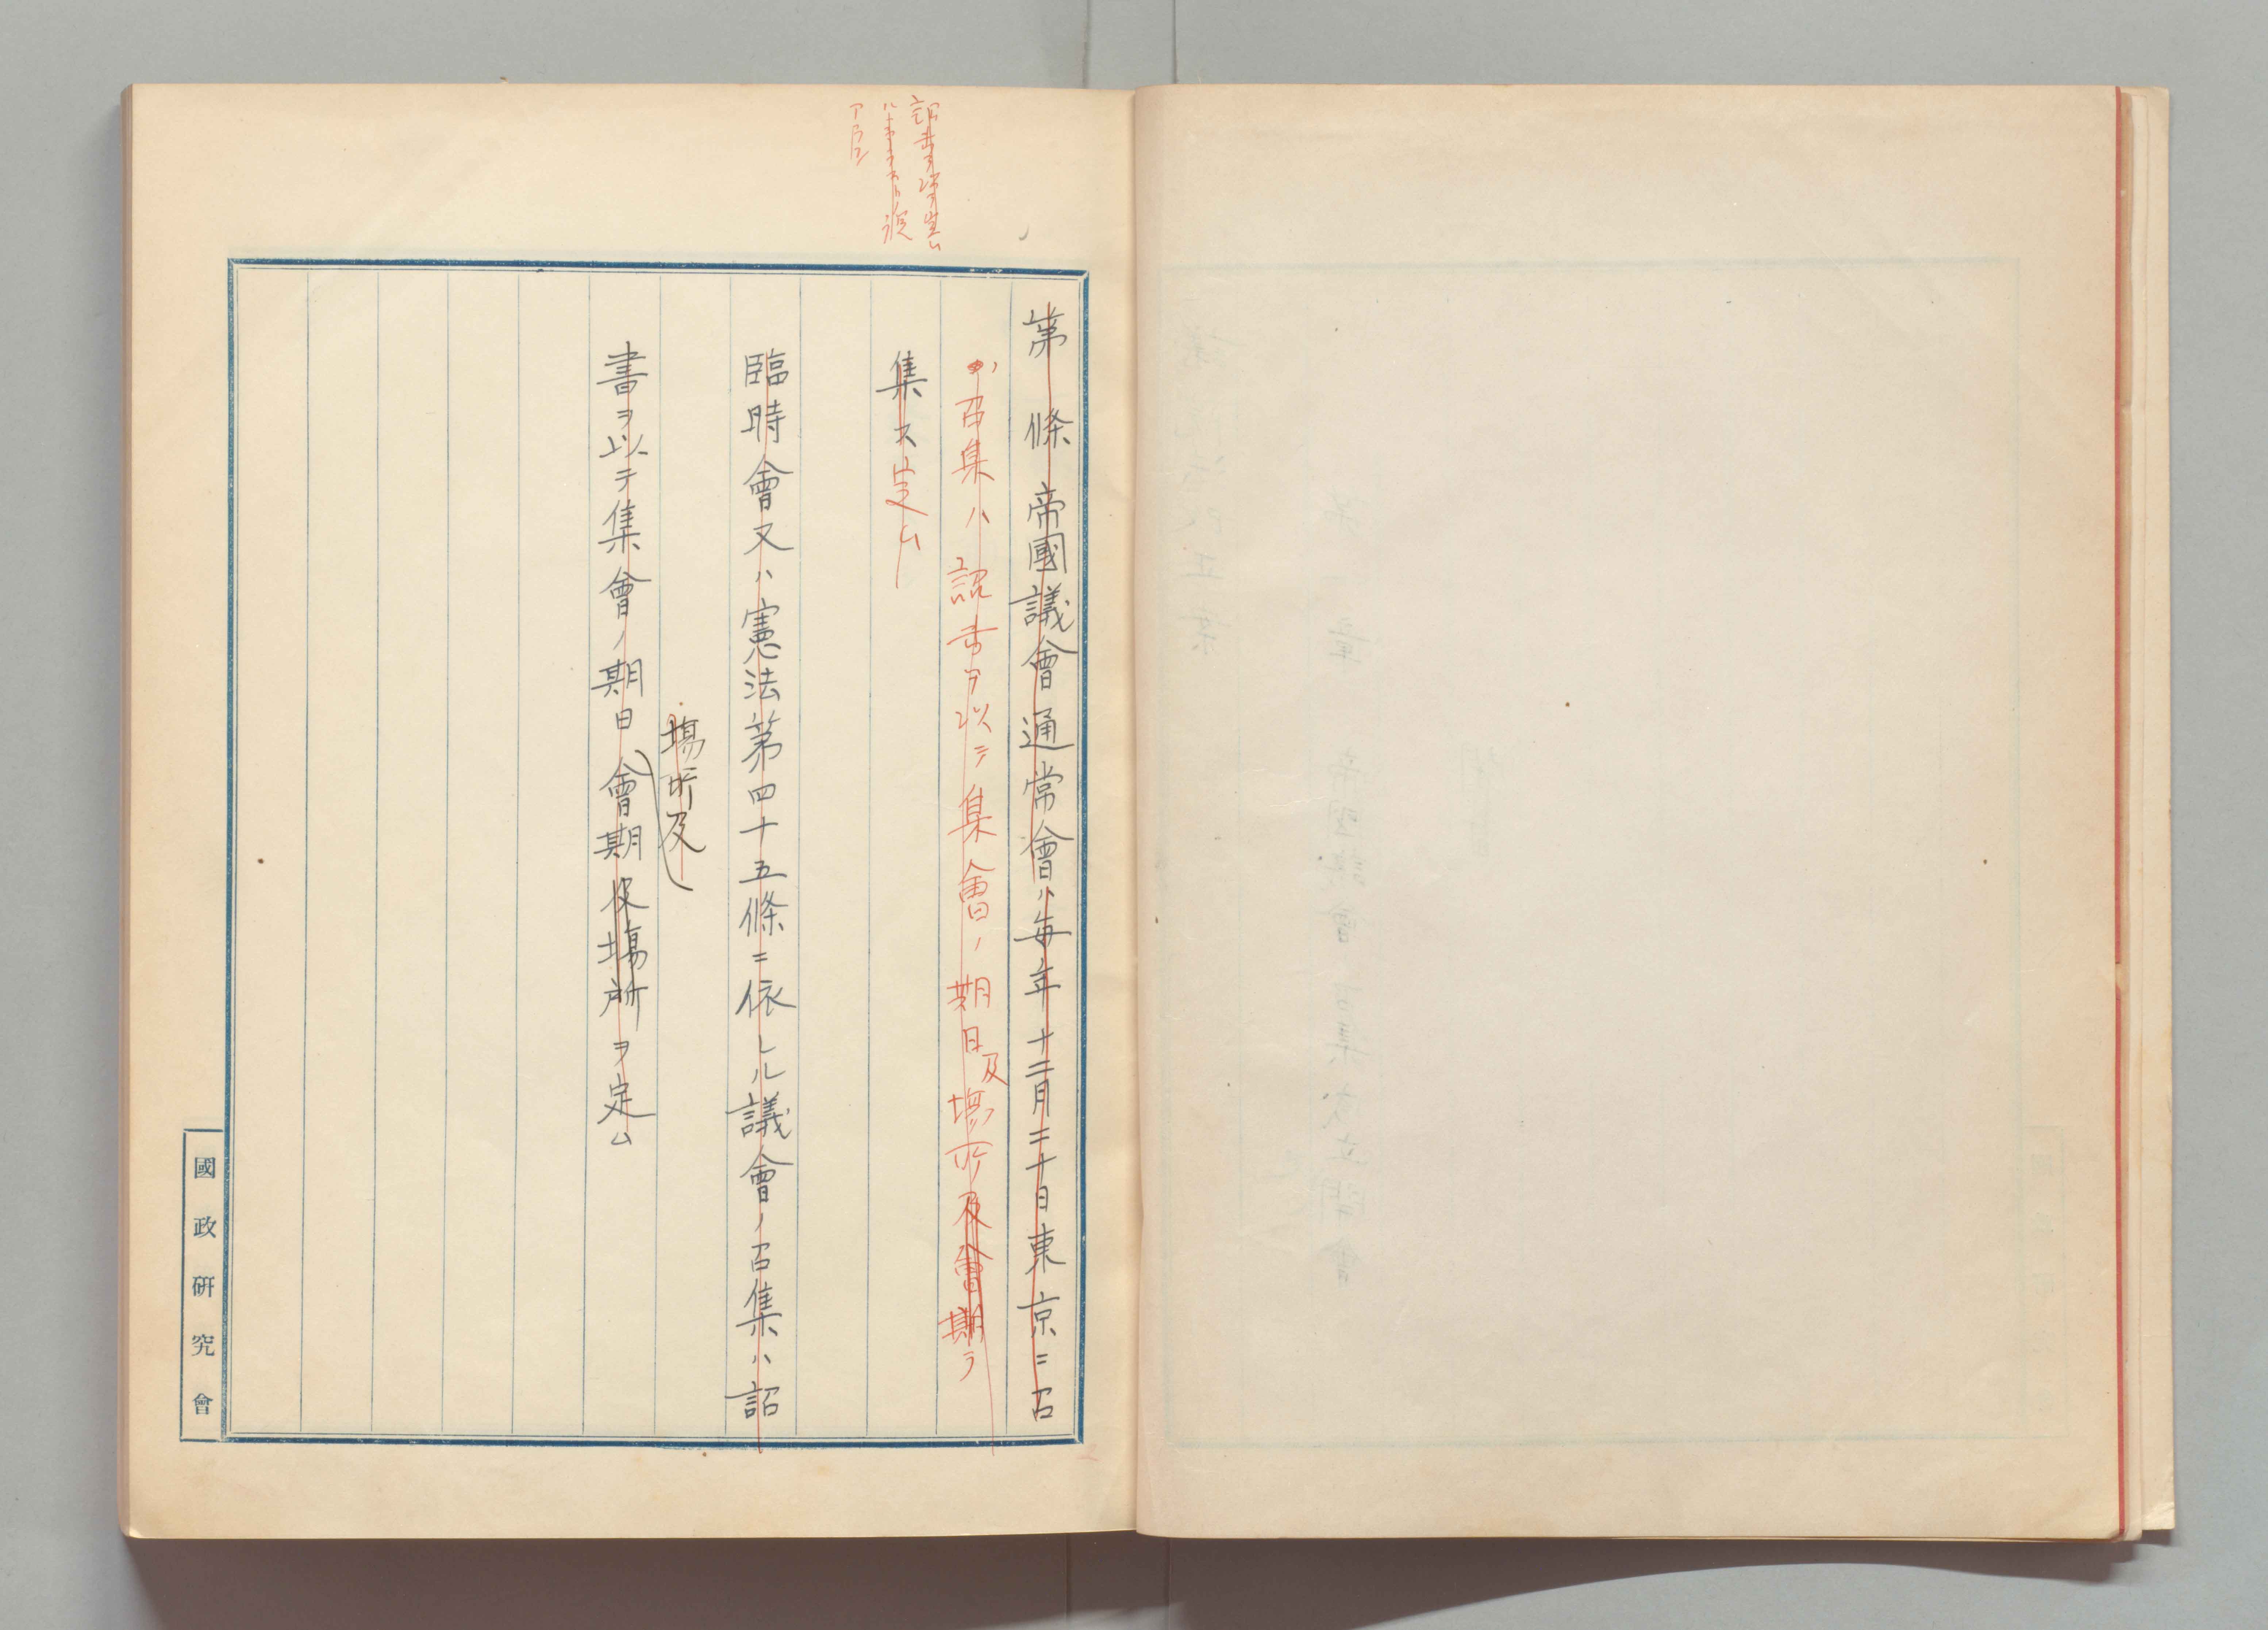 第　條　帝國議會通常會ハ毎年十二月二十日東京ニ召
召集ハ詔書ヲ以テ集會ノ期日及場所及會期ヲ
集ス定ム
臨時會又ハ憲法第四十五條ニ依レル議會ノ召集ハ詔
場所及
書ヲ以テ集會ノ期日會期及場所ヲ定ム
國政研究會